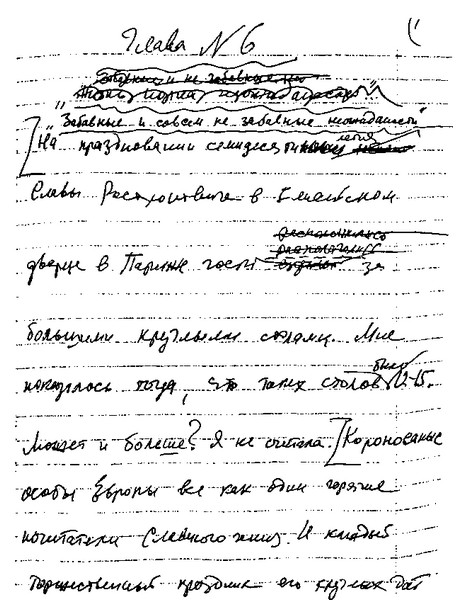 Глава № 6
Забавные и не забавные
"Забавные и совсем не забавные неожиданности"
На праздновании семидесятилетия
Славы Ростроповича в Елисейском
дворце в Париже гости расположились за
большими круглыми столами. Мне
показалось тогда, что таких столов было 12-15.
Может и больше? Я не считала. Коронованые
особы Европы все как один горячие
почитатели Славного жизн. И каждый
торжественный праздник его круглых дат